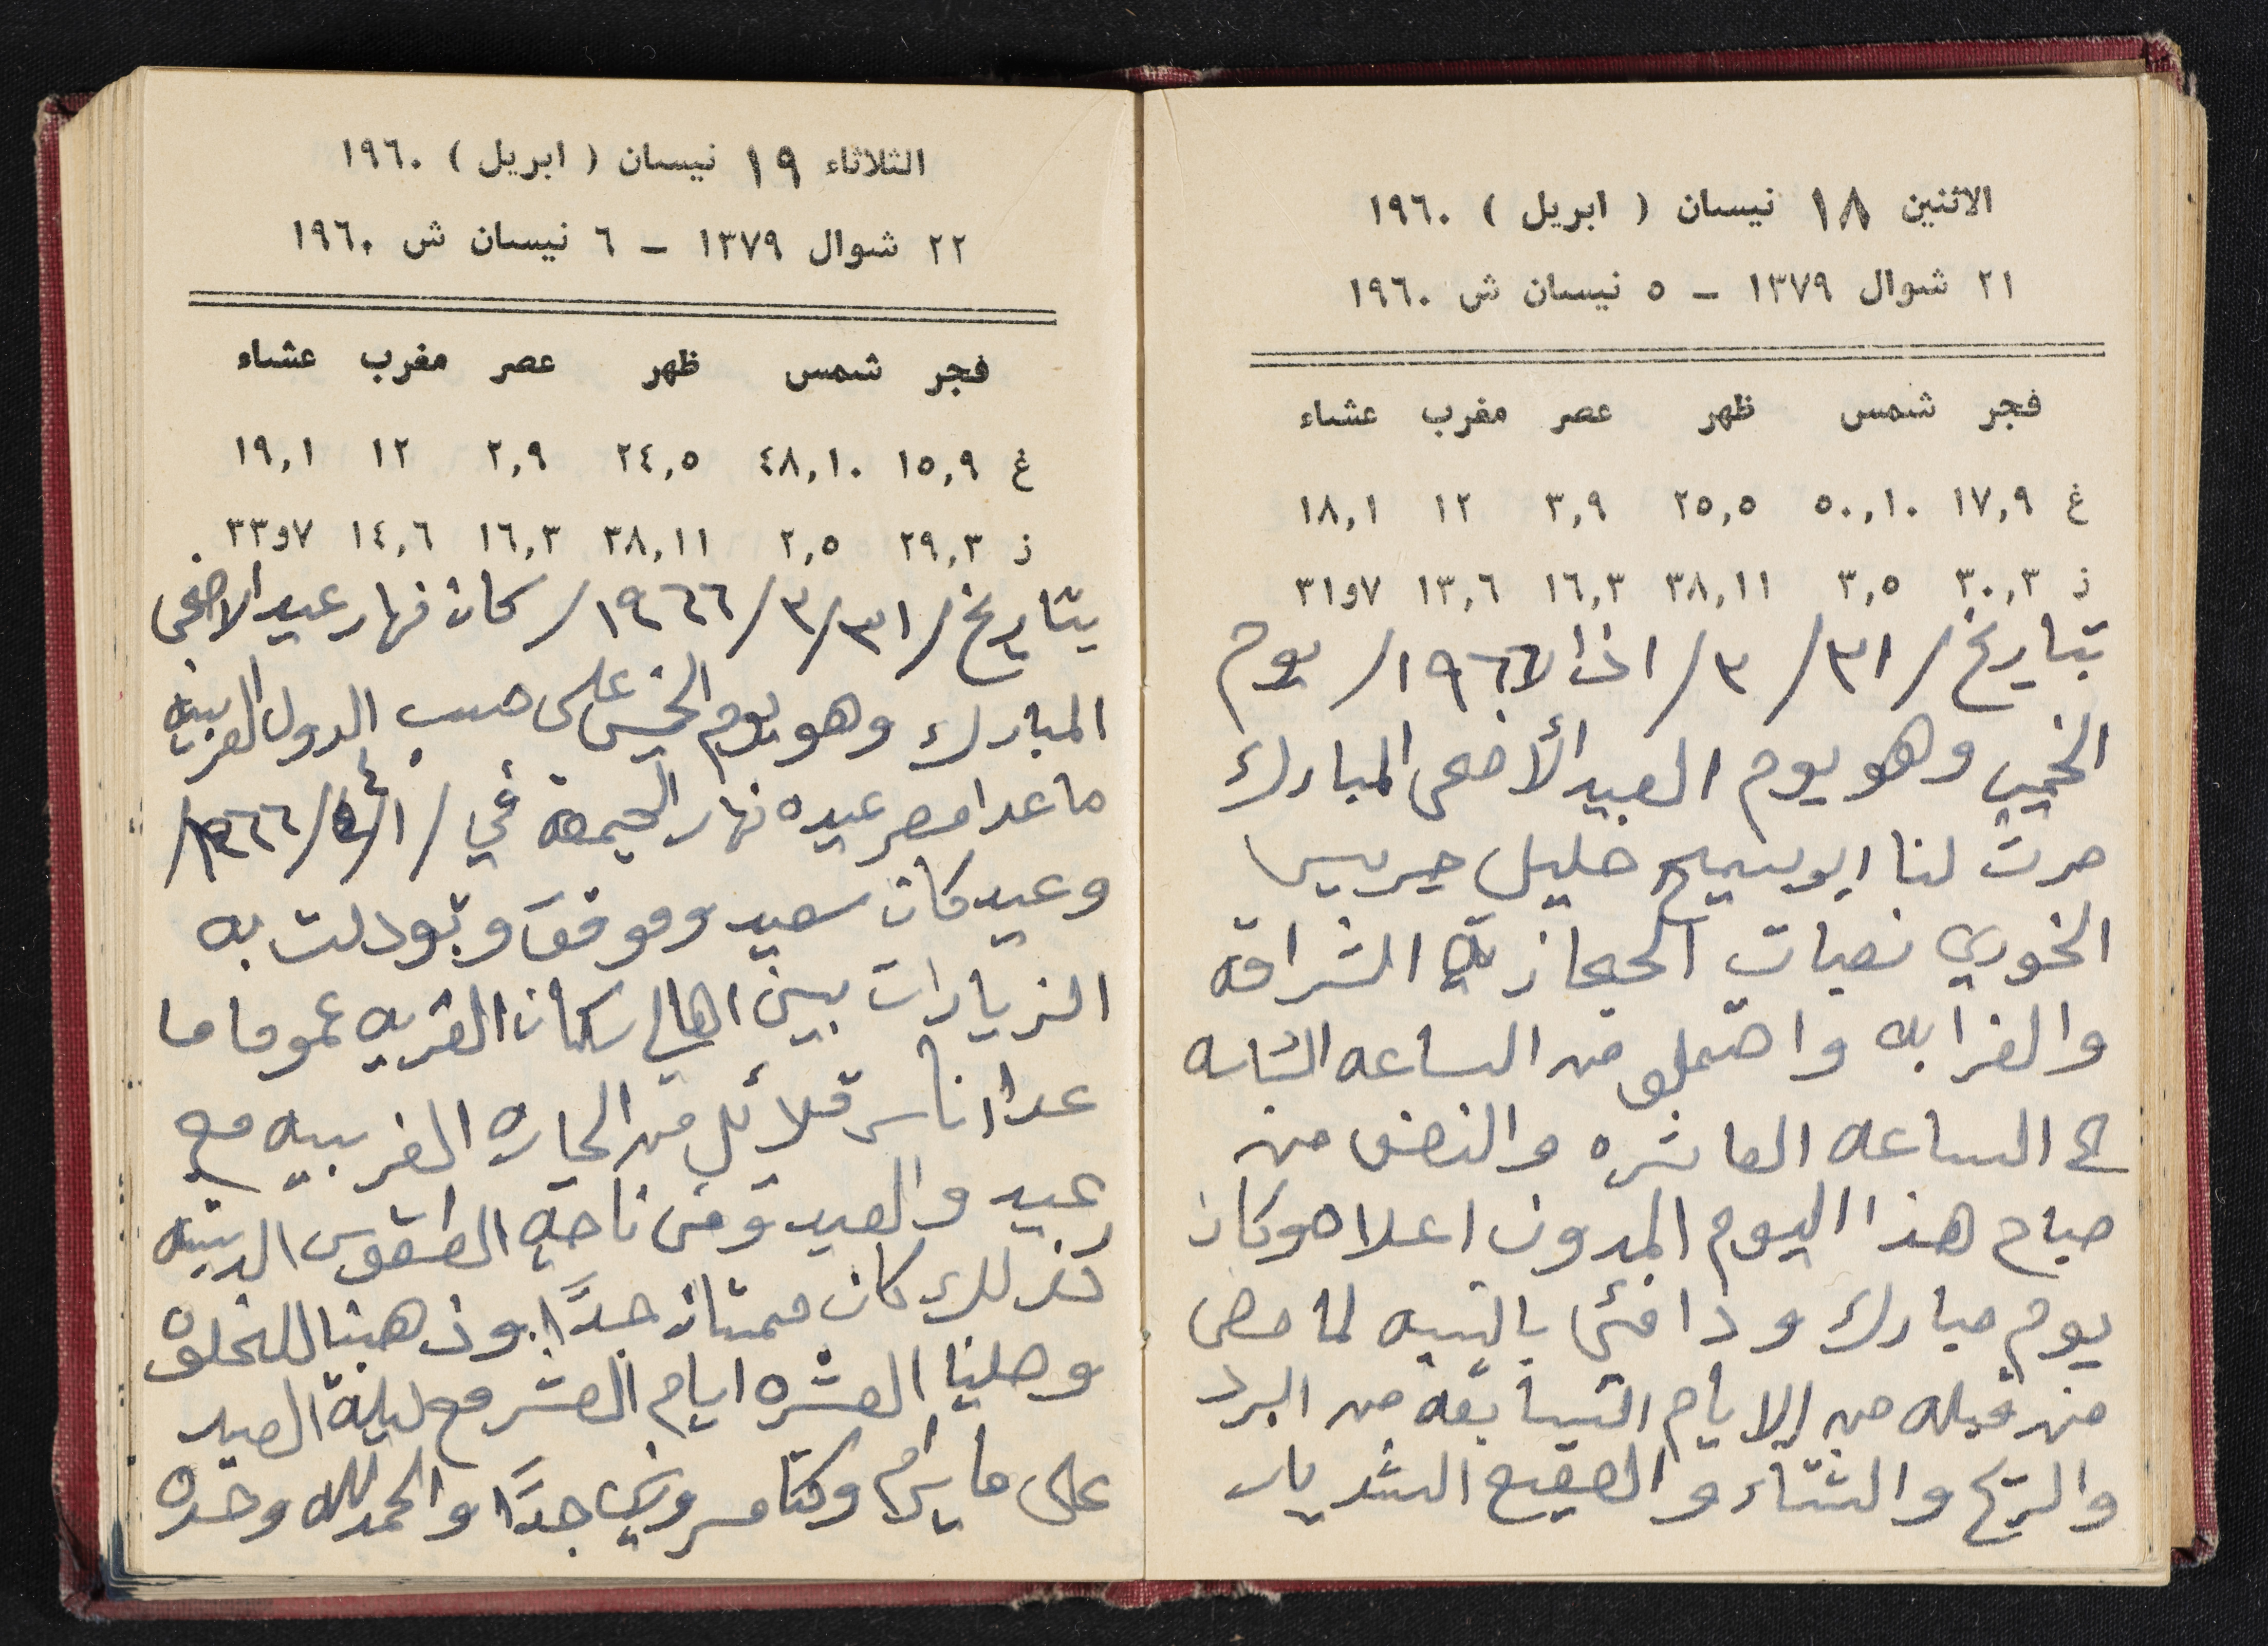 الاثنين ١٨ نيسان ( ابريل ) ١٩٦٠
٢١ شوال ١٣٧٩ – ٥ نيسان ش ١٩٦٠
فجر شمس ظهر عصر مغرب عشاء
غ ١٧,٩ ٥٠,١٠ ٢٥,٥ ٣,٩ ١٢ ١٨,١
ز ٣٠,٣ ٣,٥ ٣٨,١١ ١٦,٣ ١٣,٦ ٧و٣١
بتاريخ /٣١/ ٣/ اذار ١٩٦٦/ يوم
الخميس وهو يوم العيد الأضحى المبارك
حرث لنا ابو سميح خليل جريس
الخوري نصبات الحجازية الشراقه
والغرابه واحتملو من الساعه الثانيه
الى الساعه العاشره والنصف من
صباح هذا اليوم المدون اعلاه وكان
يوم مبارك ودافئ بالنسبه لما مضى
من قبله من الايام السابقه من البرد
والريح والشتاء والصقيع الشديد
الثلاثاء ١٩ نيسان ( ابريل ) ١٩٦٠
٢٢ شوال ١٣٧٩ – ٦ نيسان ش ١٩٦٠
فجر شمس ظهر عصر مغرب عشاء
غ ١٥,٩ ٤٨,١٠ ٢٤,٥ ٢,٩ ١٢ ١٩,١
ز ٢٩,٣ ٢,٥ ٣٨,١١ ١٦,٣ ١٤,٦ ٧و٣٣
بتاريخ /٣١/٣/١٩٦٦/ كان نهار عيد الاضحى
المبارك وهو يوم الخميس على حسب الدول العربيه
ما عدا مصر عيده نهار الجمعة في /١/٤/١٩٦٦/
وعيد كان سعيد وموفق وتبودلت به
الزيارات بين اهالي سكان القريه عموما ما
عدا اناس قلائل من الحاره الغربيه مع
عيد والعيد ومن ناحية الطقوس الدينيه
كذلك كان ممتاز جدًا وذهبنا للخلوه
وصلينا العشره ايام العشر مع ليلة العيد
على ما يرام وكنا مسرورين جدًا والحمد لله وحده